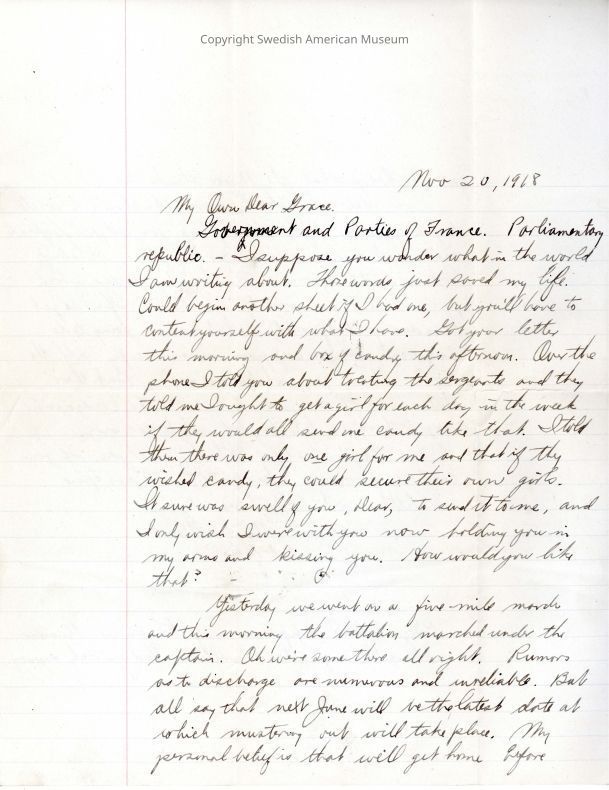 Copyright Swedish American Museum
Nov 20, 1918
My Own Dear Grace.
Government and Parties of France. Parliamentary
republic. - I suppose you wonder what in the world
I am writing about. Those words just saved my life.
Could begin another sheet if I had one, but you'll have to
content yourself with what I have. Got your letter
this morning and box of candy this afternoon. Over the
phone I told you about treating the sergeants and they
told me I ought to get a girl for each day in the week
if they would all send me candy like that. I told
them there was only one girl for me and that if they
wished candy, they could secure their own girls.
It sure was swell of you, dear, to send it to me, and
I only wish I were with you now holding you in
my arms and kissing you. How would you like
that?
Yesterday we went on a five-mile march
and this morning the battalion marched under the
captain. Oh we're some there all right. Rumors
as to discharge are numerous and unreliable. But
all say that next June will be the latest date at
which mustering out will take place. My
personal belief is that will get home before